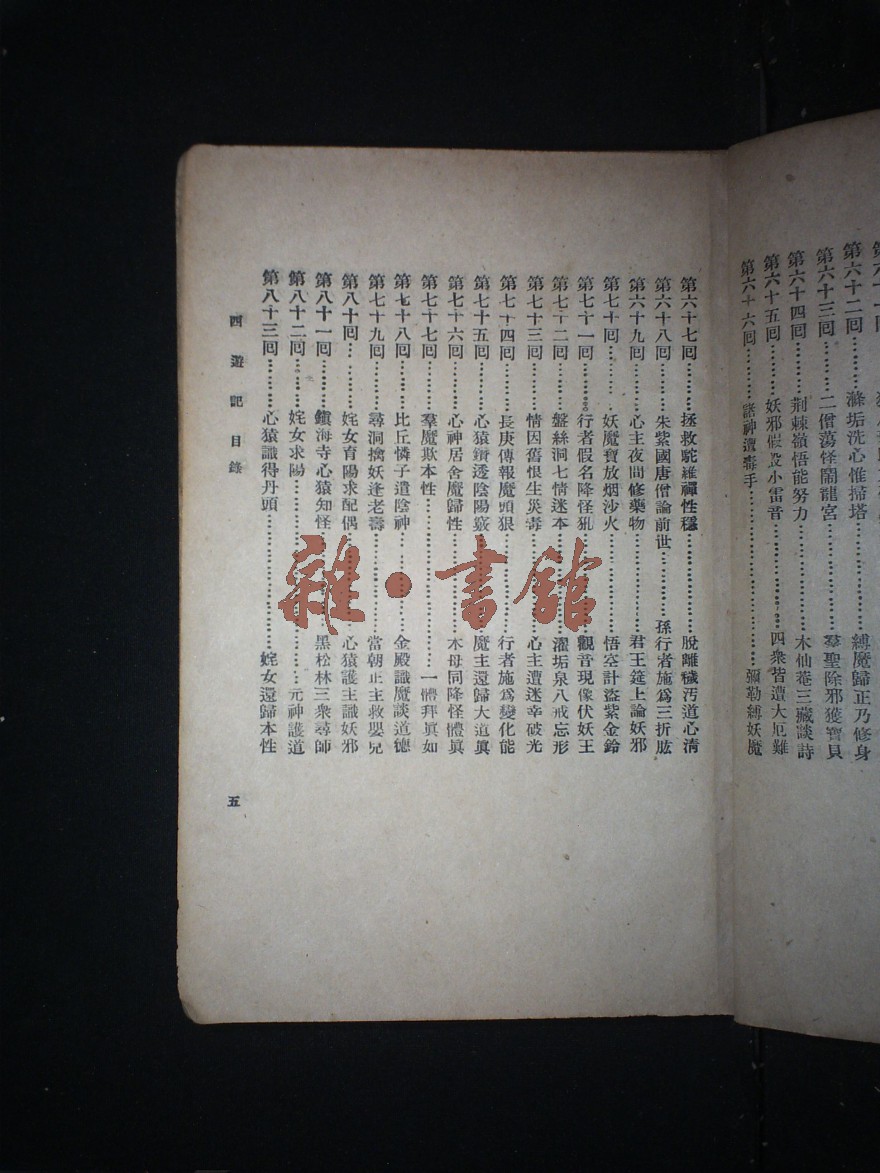 第六十二回………滌垢洗心惟掃塔………縛魔歸正乃修身
第六十三回………二僧蕩怪鬧龍宮………羣聖除邪獲寶貝
第六十四回………荆棘嶺悟能努力………木仙菴三藏談詩
第六十五回………妖邪假設小雷音………四衆皆遭大厄難
第六十六回………諸神遭毒手………彌勒縛妖魔
第六十七回………拯救駝羅禪性穩………脫離穢汚道心淸
第六十八回………朱紫國唐僧論前世………孫行者施爲三折肱
第六十九回………心主夜間修藥物………君王筵上論妖邪
第七十回………妖魔寶放烟沙火………悟空計盜紫金鈴
第七十一回………行者假名降怪犼………觀音現像伏妖王
第七十二回………盤絲洞七情迷本………濯垢泉八戒忘形
第七十三回………情因舊恨生災毒………心主遭迷幸破光
第七十四回………長庚傳報魔頭狠………行者施爲變化能
第七十五回………心猿鑽透陰陽竅………魔主還歸大道眞
第七十六回………心神居舍魔歸性………木母同降怪體眞
第七十七回………羣魔欺本性………一體拜眞如
第七十八回………比丘憐子遣陰神………金殿識魔談道德
第七十九回………尋洞擒妖逢老壽………當朝正主救嬰兒
第八十回………姹女育陽求配偶………心猿護主識妖邪
第八十一回………鎭海寺心猿知怪………黑松林三衆尋師
第八十二回………姹女求陽………元神護道
第八十三回………心猿識得丹頭………姹女還歸本性
西遊記目錄
五
雜·書館